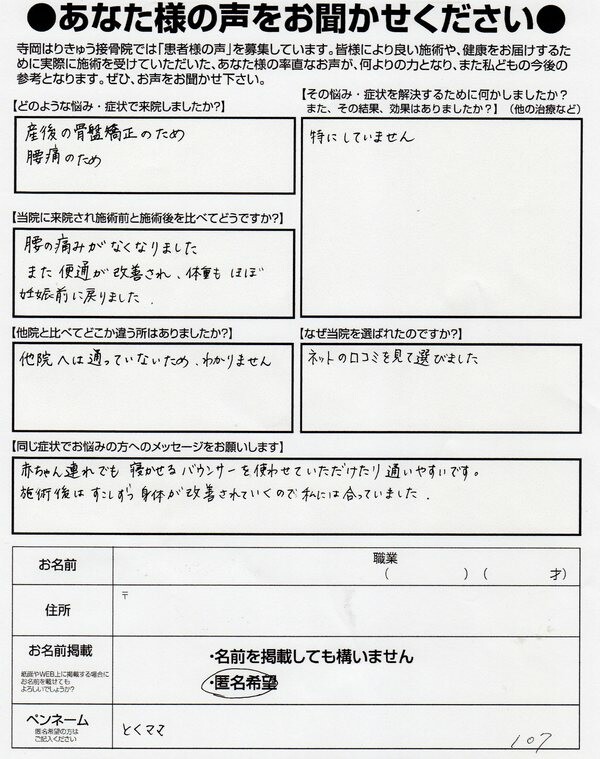 ●あなた様の声をお聞かせください●
寺岡はりきゅう接骨院では「患者様の声」を募集しています。皆様により良い施術や、健康をお届けするた
めに実際に施術を受けていただいた、あなた様の率直なお声が、何よりの力となり、また私どもの今後の
参考となります。ぜひ、お声をお聞かせ下さい。
【どのような悩み・症状で来院しましたか?】
産後の骨盤矯正のため
腰痛のため
【その悩み・症状を解決するために何かしましたか?
また、その結果、効果はありましたか?】(他の治療など)
特にしていません
【当院に来院され施術前と施術後を比べてどうですか?】
腰の痛みがなくなりました
また便通が改善され、体重もほぼ
妊娠前に戻りました.
【他院と比べてどこか違う所はありましたか?】
他院へは通っていないため、わかりません
【なぜ当院を選ばれたのですか?】
ネットの口コミを見て選びました
【同じ症状でお悩みの方へのメッセージをお願いします】
赤ちゃん連れでも寝かせるバウンサーを使わせていただけたり通いやすいです。
施術後はすこしずつ身体が改善されていくので私には合っていました.
お名前
職業
( ) ( 才)
住所
〒
お名前掲載
紙面やWEB上に掲載する場合に
お名前を載せても
よろしいでしょうか?
・名前を掲載しても構いません
・匿名希望
ペンネーム
匿名希望の方は
ご記入ください
とくママ
107